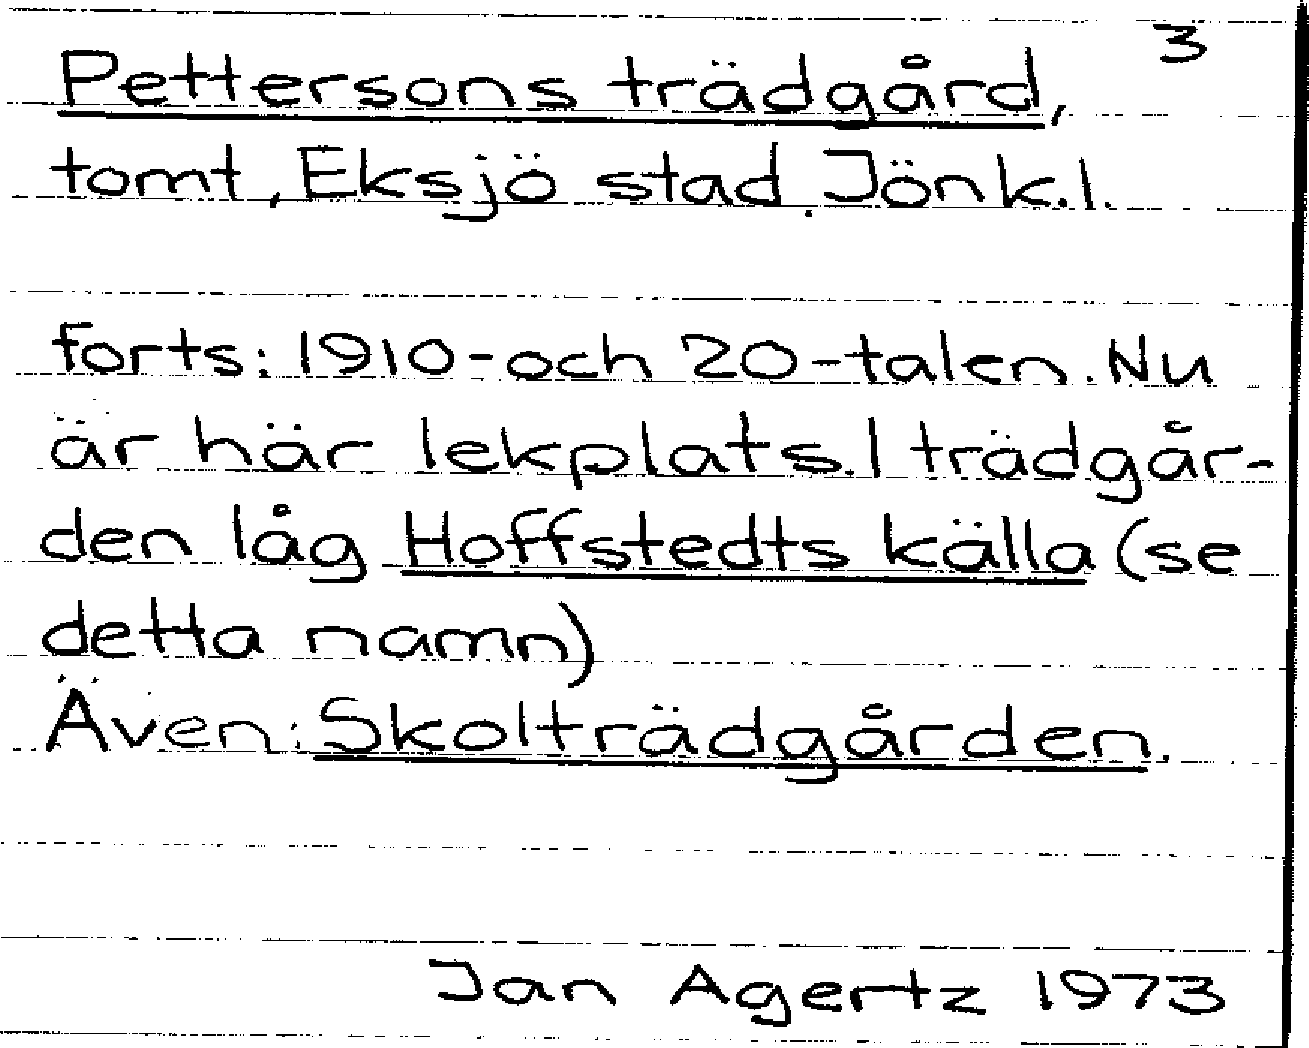 3
Pettersons trädgård,
tomt, Eksjö stad. Jönk.l.
forts: 1910-och 20-talen. Nu
är här lekplats. I trädgår-
den låg Hoffstedts källa (se
detta namn)
Även: Skolträdgården.
Jan Agertz 1973